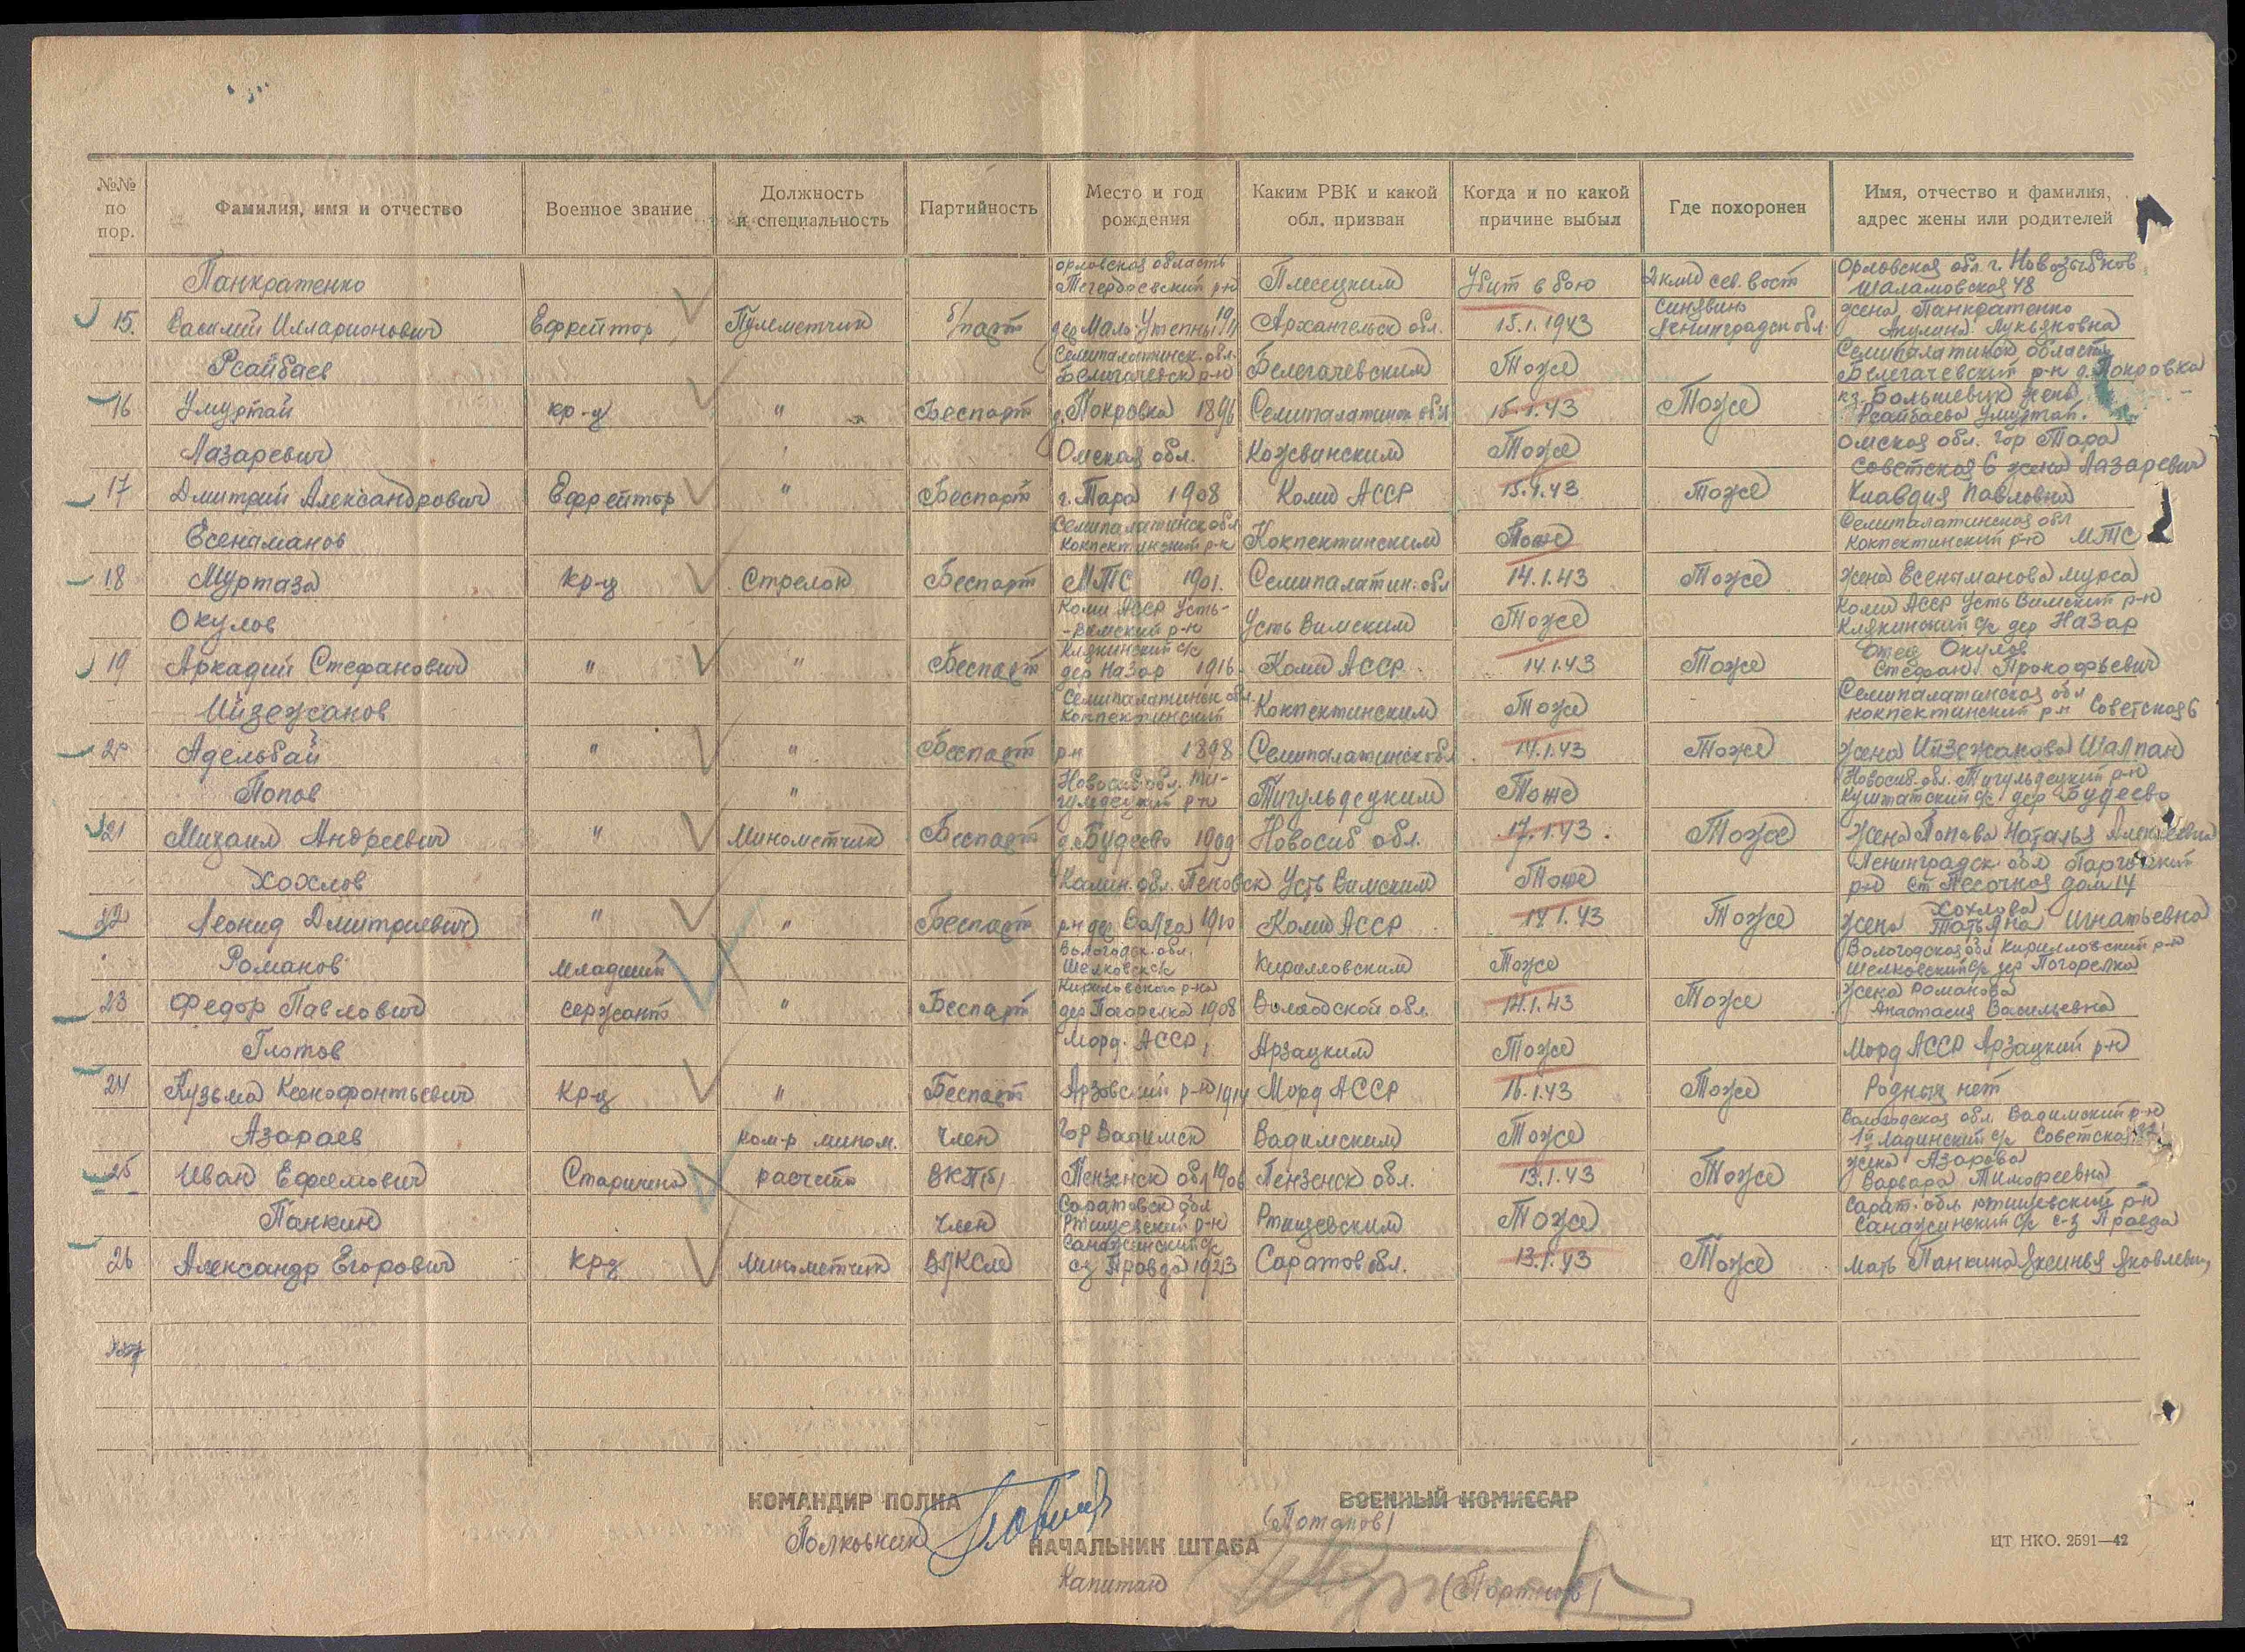 №№ по пор.
Фамилия, имя и отчество
Военное звание
Должность и специальность
Партийность
Место и год рождения
Каким РВК и какой обл. призван
Когда и по какой причине выбыл
Где похоронен
Имя, отчество и фамилия, адрес жены или родителей
15. Панкратенко Василий Илларионович
Ефрейтор
Пулеметчик
б/парт
орловская область
р-н
дер Мало-Утепны 1911
Плесецким
Архангельск обл.
Убит в бою
15.1.1943
2 клм сев. вост
Синявино
Ленинградск обл.
Орловская обл. г. Новозыбков
Шаламовская 48
жена Панкратенко
Акулина Лукьяновна
16 Рсайбаев Умуртай
кр-ц
"
Беспарт
Семипалатинск. обл.
Белигачевск р-н
д. Покровка 1896
Белегачевским
Семипалатинск обл
Тоже
15.1.43
Тоже
Семипалатинск область
Белегачевский р-н д. Покровка
кз. Большевик жена
Рсайбаева Умуртай.
17 Лазаревич Дмитрий Александрович
Ефрейтор
"
Беспарт
Омская обл.
г. Тара 1908
Кожвинским
Коми АССР
Тоже
15.1.43
Тоже
Омская обл. гор Тара
Советская 6 жена Лазаревич
Клавдия Павловна
18 Есенаманов Муртаза
кр-ц
Стрелок
Беспарт
Семипалатинск обл
Кокпектинский р-н
МТС 1901.
Кокпектинским
Семипалатин. обл
Тоже
14.1.43
Тоже
Семипалатинская обл
Кокпектинский р-н МТС
жена Есенаманова Мурса
19 Окулов Аркадий Стефанович
"
"
Беспарт
Коми АССР Усть-
-Вимский р-н
Кляжинский с/с
дер Назар 1916
Усть Вимским
Коми АССР
Тоже
14.1.43
Тоже
Коми АССР Усть Вимский р-н
Кляжинский с/с дер Назар
Отец Окулов
Стефан Прокофьевич
20 Ийзежанов Адельбай
"
"
Беспарт
Семипалатинск обл.
Кокпектинский
р-н 1898
Кокпектинским
Семипалатинск обл
Тоже
14.1.43
Тоже
Семипалатинская обл
Кокпектинский р-н Советская 6
жена Ийзежанова Шалпан
21 Попов Михаил Андреевич
"
"
Минометчик
Беспарт
Новосиб. обл. Ти-
гульдецкий р-н
д. Будеево 1909
Тигульдецким
Новосиб обл.
Тоже
17.1.43.
Тоже
Новосиб. обл. Тигульдецкий р-н
Куштатский с/с дер Будеево
жена Попова Наталья Алексеевна
22 Хохлов Леонид Дмитриевич
"
"
Беспарт
Калин. обл. Псковск
р-н дер Волга 1910
Усть Вимским
Коми АССР
Тоже
14.1.43
Тоже
Ленинградск. обл Парголский
р-н ст Песочная дом 14
жена Хохлова
Татьяна Игнатьевна
23 Романов Федор Павлович
младший сержант
"
Беспарт
Вологодск. обл.
Шелковск с/с
Кириловского р-на
дер Погорелка 1908
Кирилловским
Вологодской обл.
Тоже
14.1.43
Тоже
Вологодская обл Кирилловский р-н
Шелковский с/с дер Погорелка
Жена Романова
Анастасия Васильевна
24 Глотов Кузьма Ксенофонтьевич
Кр-ц
"
Беспарт
Морд. АССР,
Арзовский р-н 1914
Арзацким
Морд АССР
Тоже
16.1.43
Тоже
Морд АССР Арзацкий р-н
Родных нет
25 Азараев Иван Ефимович
Старшина
ком-р мином. расчета
Член ВКП(б)
Гор Вадимск
Пензенск обл 1906
Вадимским
Пензенск обл.
Тоже
13.1.43
Тоже
Вологодская обл. Вадимский р-н
1й Ладинский с/с Советская
жена Азарова
Варвара Тимофеевна
26 Панкин Александр Егорович
Кр-ц
Минометчик
Член ВЛКСМ
Саратовск обл
Ртищевский р-н
Санажинский с/с
с-з Правда 1923
Ртищевским
Саратов обл.
Тоже
13.1.43
Тоже
Сарат. обл. Ртищевский р-н
Санажинский с/с с-з Правда
Мать Панкина Аксинья Яковлевна
КОМАНДИР ПОЛКА
ВОЕННЫЙ КОМИССАР
Полковник
(Потапов)
НАЧАЛЬНИК ШТАБА
ЦТ НКО. 2591—42
Капитан
(Портнов)